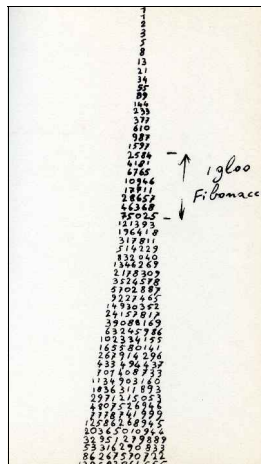 1
1
2
3
5
8
13
21
34
55
89
144
233
377
610
987
1597
2584
4181
6765
10946
17711
28657
46368
75025
121393
196418
317811
514229
832040
1346269
2178309
3524578
5702887
9227465
14930352
24157817
39088169
63245986
102334155
165580141
267914296
433494437
701408733
1134903160
1836311893
2971215053
4807526946
7778741999
12586268945
20365010944
32951279889
53316290833
86267570722
igloo
Fibonacc